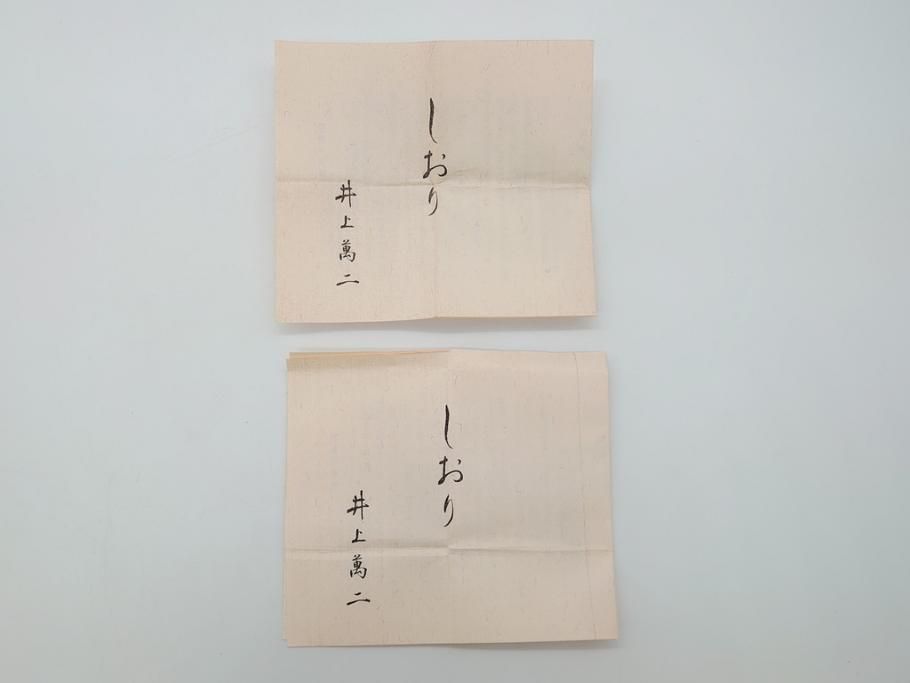 しおり
井上萬二
しおり
井上萬二